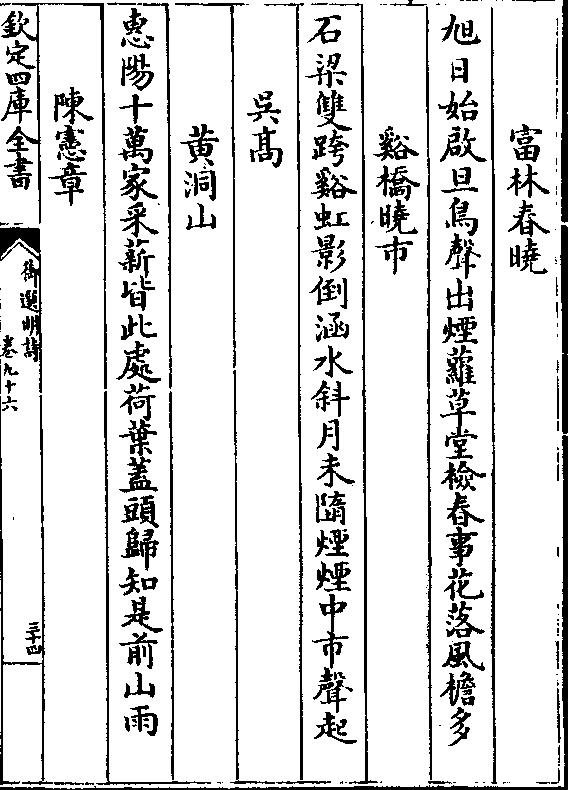 富林春曉
旭日始啟旦鳥聲出煙蘿草堂檢春事花落風檐多
谿橋曉市
石梁雙跨谿虹影倒涵水斜月未隨煙煙中市聲起
吳高
黃洞山
惠陽十萬家采薪皆此處荷葉蓋頭歸知是前山雨
陳憲章
欽定四庫全書
御選明詩
卷九十六
三十四